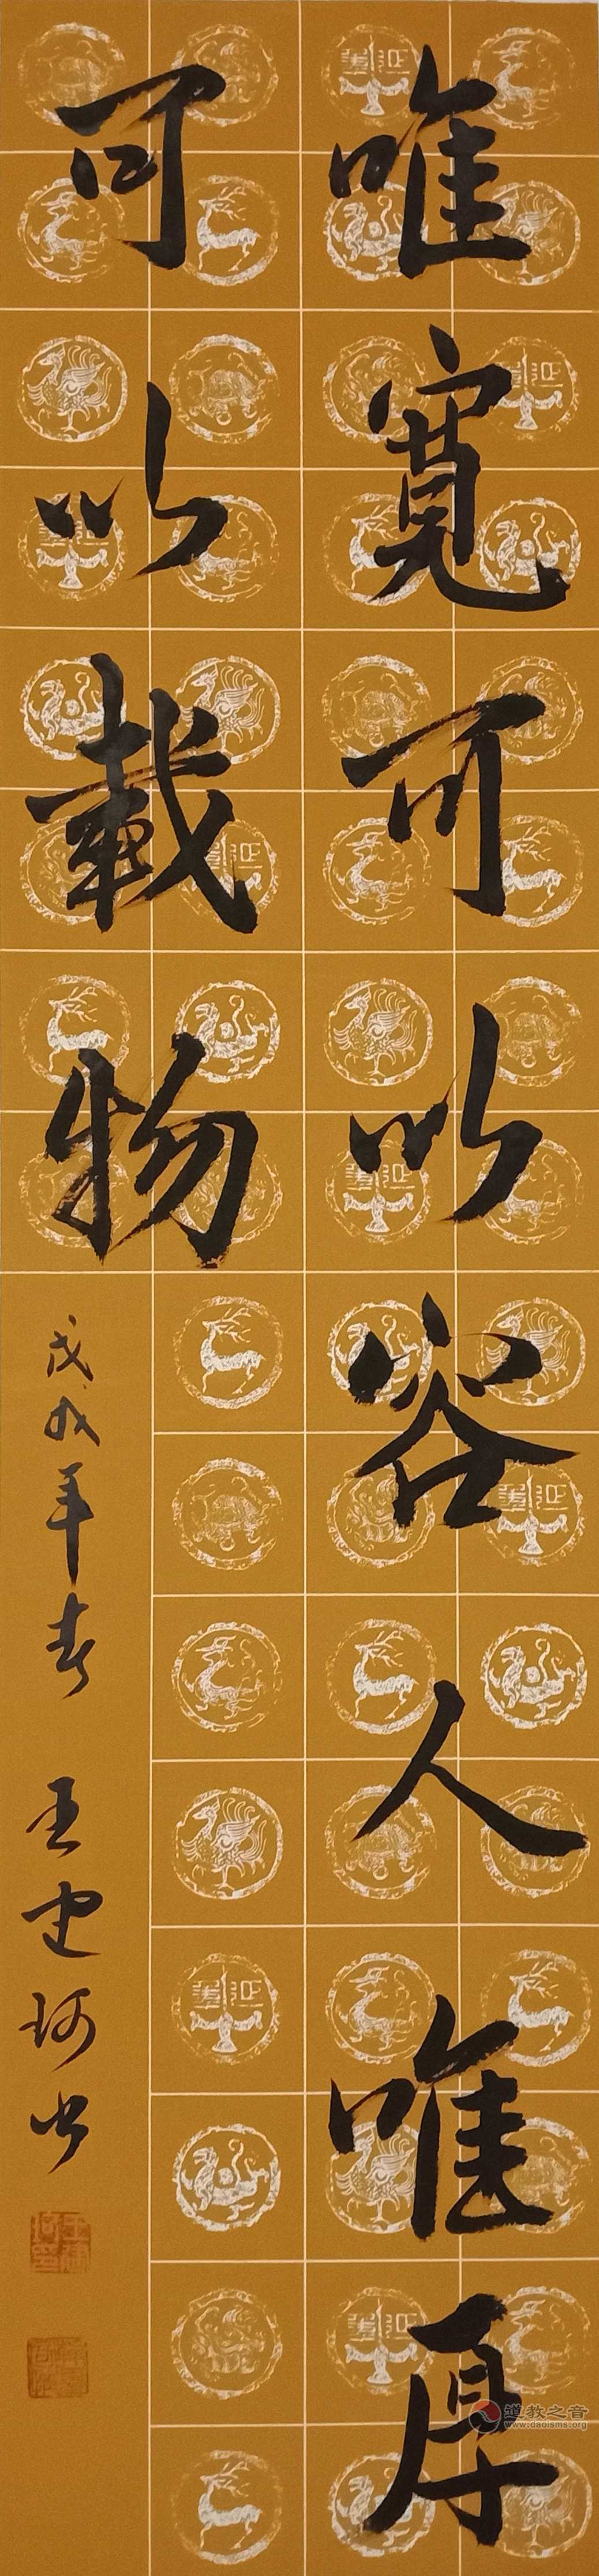 唯寬可以容人唯厚
可以載物
戊戌年春 王建珂書
道教之音
www.daoisms.org